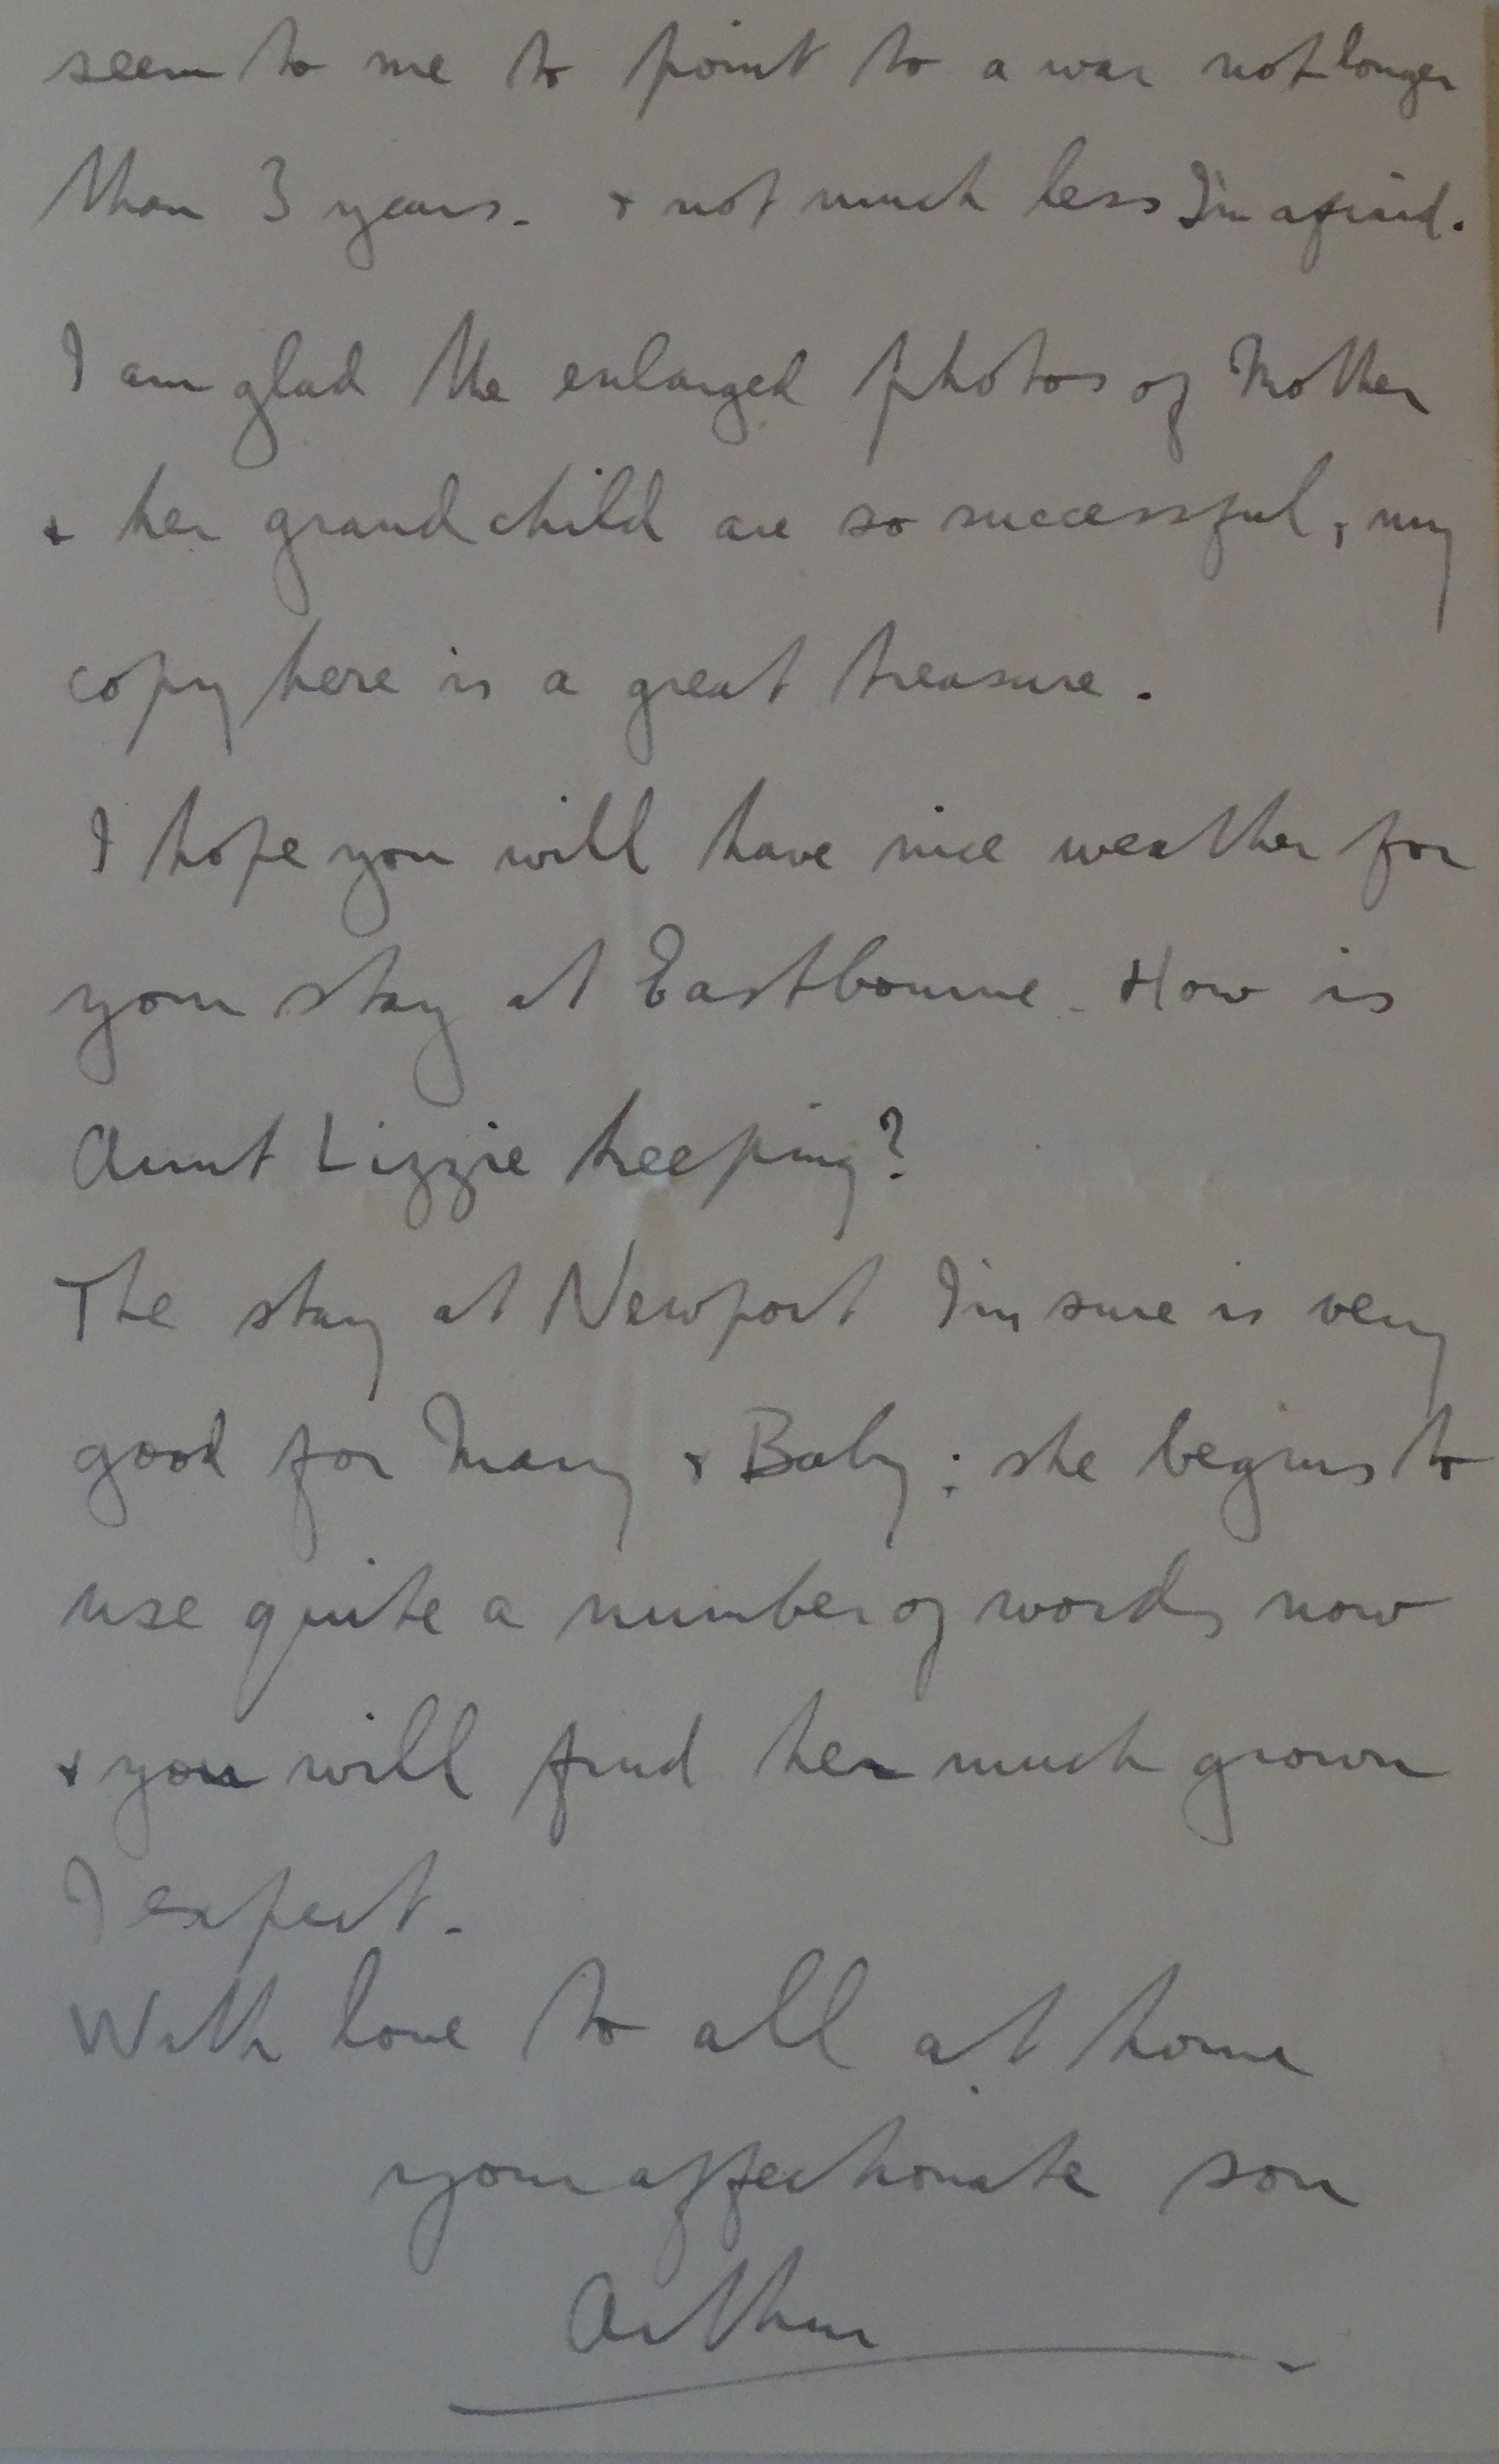 seem to me to point to a war not longer
than 3 years. & not much less I'm afraid.
I am glad the enlarged photos of Mother
& her grandchild are so successful, my
copy here is a great treasure.
I hope you will have nice weather for
your stay at Eastbourne. How is
Aunt Lizzie keeping?
The stay at Newport I'm sure is very
good for Mary & Baby; she begins to
use quite a number of words now
& you will find her much grown
I expect.
With love to all at home
your affectionate son
Arthur